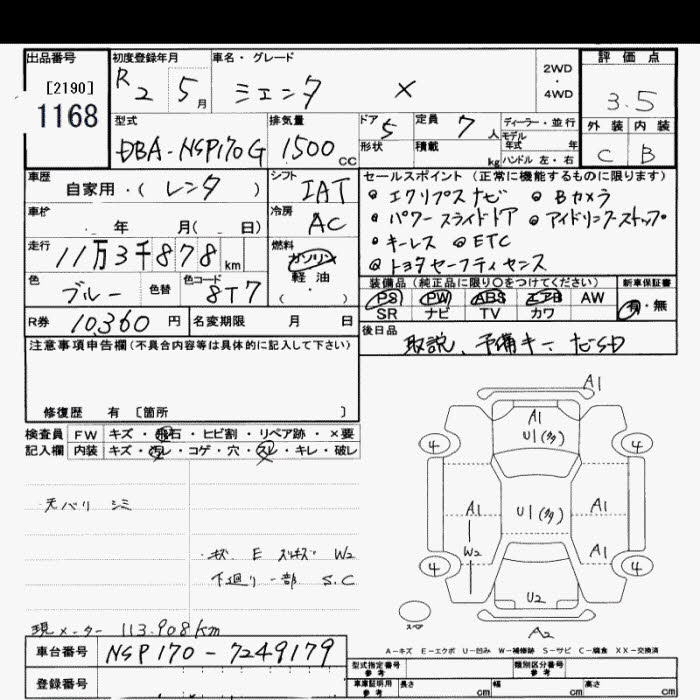 出品番号 初度登録年月 車名・グレード 評価点
[2190] R2 5月 シエンタ X 2WD・4WD 3.5
1168
型式 排気量 ドア 定員 ディーラー・並行 外装 内装
DBA-NSP170G 1500cc 5 7人 モデル年式 年 C B
形状 積載 kg ハンドル 左・右
車歴 自家用・(レンタ) シフト IAT セールスポイント(正常に機能するものに限ります)
車検 年 月( 日) 冷房 AC
エクリプスナビ Bカメラ
パワースライドドア アイドリングストップ
キーレス ETC
トヨタセーフティセンス
走行 11万3千878km 燃料 ガソリン 軽油 ( ・ )
色 ブルー 色替 色コード 8T7
装備品(純正品に限り○をつけてください) 新車保証書
PS PW ABS エアB AW 有・無
SR ナビ TV カワ
R券 10,360円 名変期限 月 日
後日品 取説、予備キー ナビSD
注意事項申告欄(不具合内容等は具体的に記入して下さい)
修復歴 有 [箇所 ]
検査員 FW キズ・飛石・ヒビ割・リペア跡・×要
記入欄 内装 キズ・汚レ・コゲ・穴・スレ・キレ・破レ
天バリ シミ
キズ E スリキズ W2
下廻り一部 S.C
現メーター 113.908km
A1
A1
U1(多)
4 4
A1 U1(多) A1
W2 A1
4 4
U2
スペア
A2
A-キズ E-エクボ U-凹み W-補修跡 S-サビ C-腐食 XX-交換済
車台番号 NSP170-7249179
登録番号
型式指定番号 参考 類別区分番号 参考
車庫証明用 参考 長さ cm 幅 cm 高さ cm